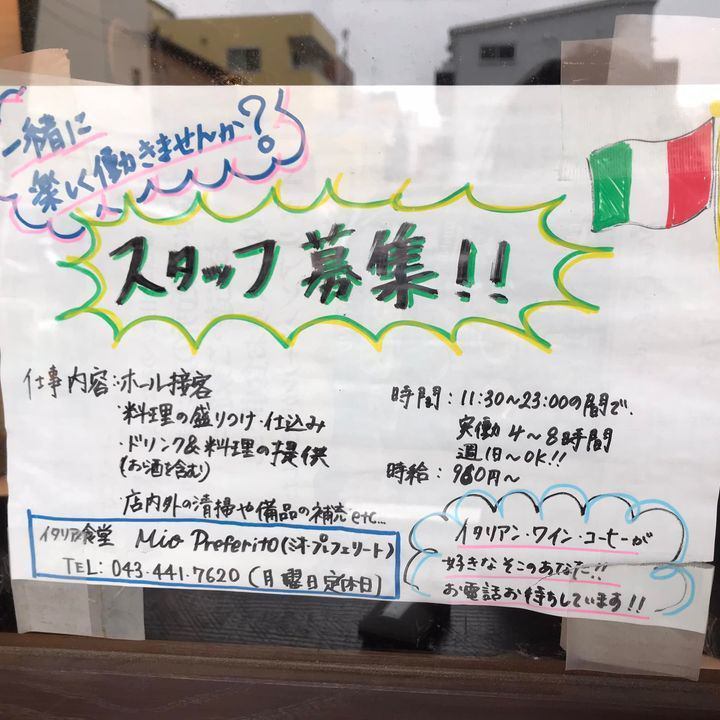 一緒に
楽しく働きませんか?
スタッフ募集!!
仕事内容:ホール接客
・料理の盛りつけ・仕込み
・ドリンク&料理の提供
(お酒を含む)
・店内外の清掃や備品の補充 etc...
時間:11:30~23:00の間で、
実働4~8時間
週1日~OK!!
時給:960円~
イタリア食堂 Mio Preferito(ミオ・プレフェリート)
TEL:043.441.7620(月曜日定休日)
イタリアン・ワイン・コーヒーが
好きなそこのあなた!!
お電話お待ちしています!!